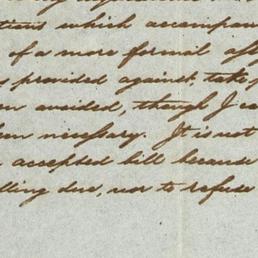 tions which accompan
of a more formal aff
provided against, take
avoided, though I ca
necessary. It is not
accepted bill because
ling due, nor to refuse